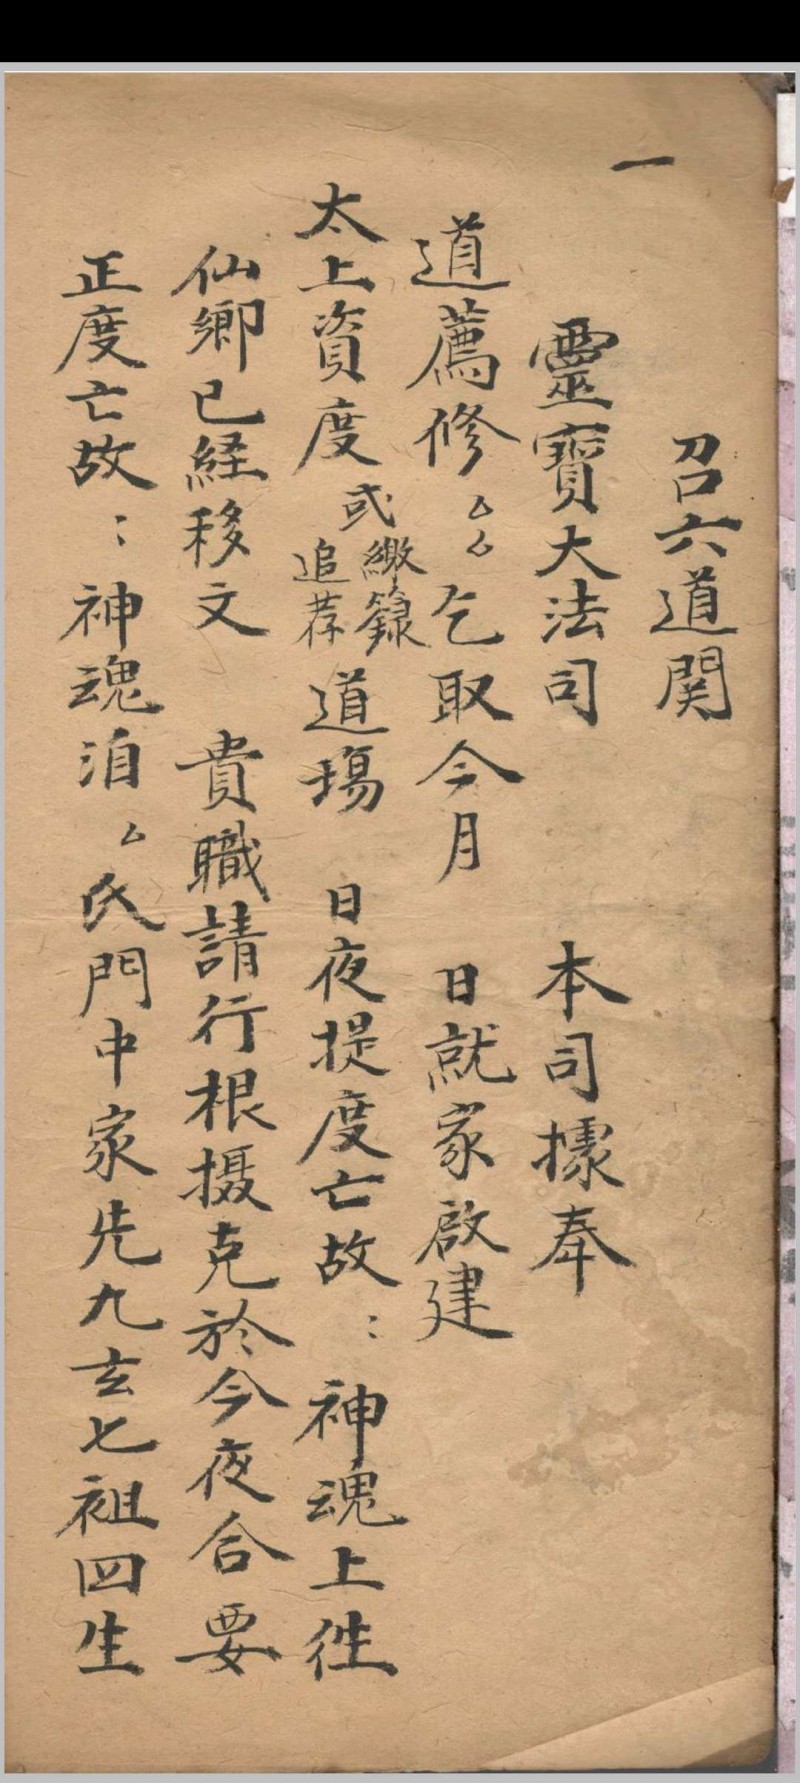 一
召六道関
靈寳大法司　本司據奉
道薦修厶厶乞取今月　日就家啟建
太上資度或繳籙追荐道場　日夜提度亡故：神魂上徃
仙鄉已経移文　貴職請行根摄克於今夜合要
正度亡故：神魂洎厶氏門中家先九玄七祖四生